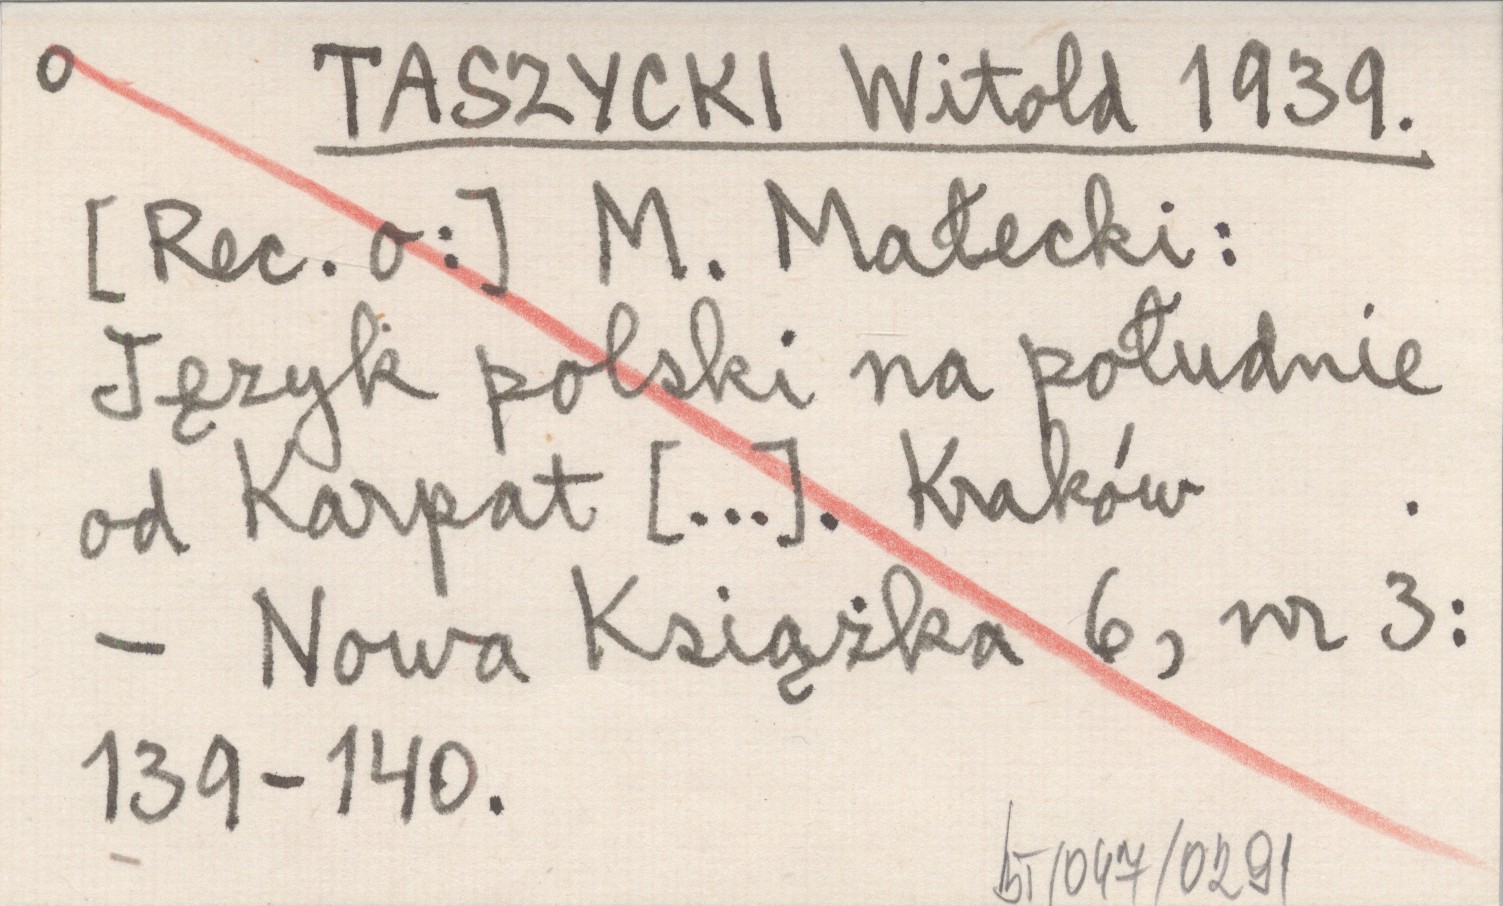 o TASZYCKI Witold 1939.
[Rec. o:] M. Małecki:
Język polski na południe
od Karpat [...]. Kraków .
– Nowa Książka 6, nr 3:
139-140.
/047/0291